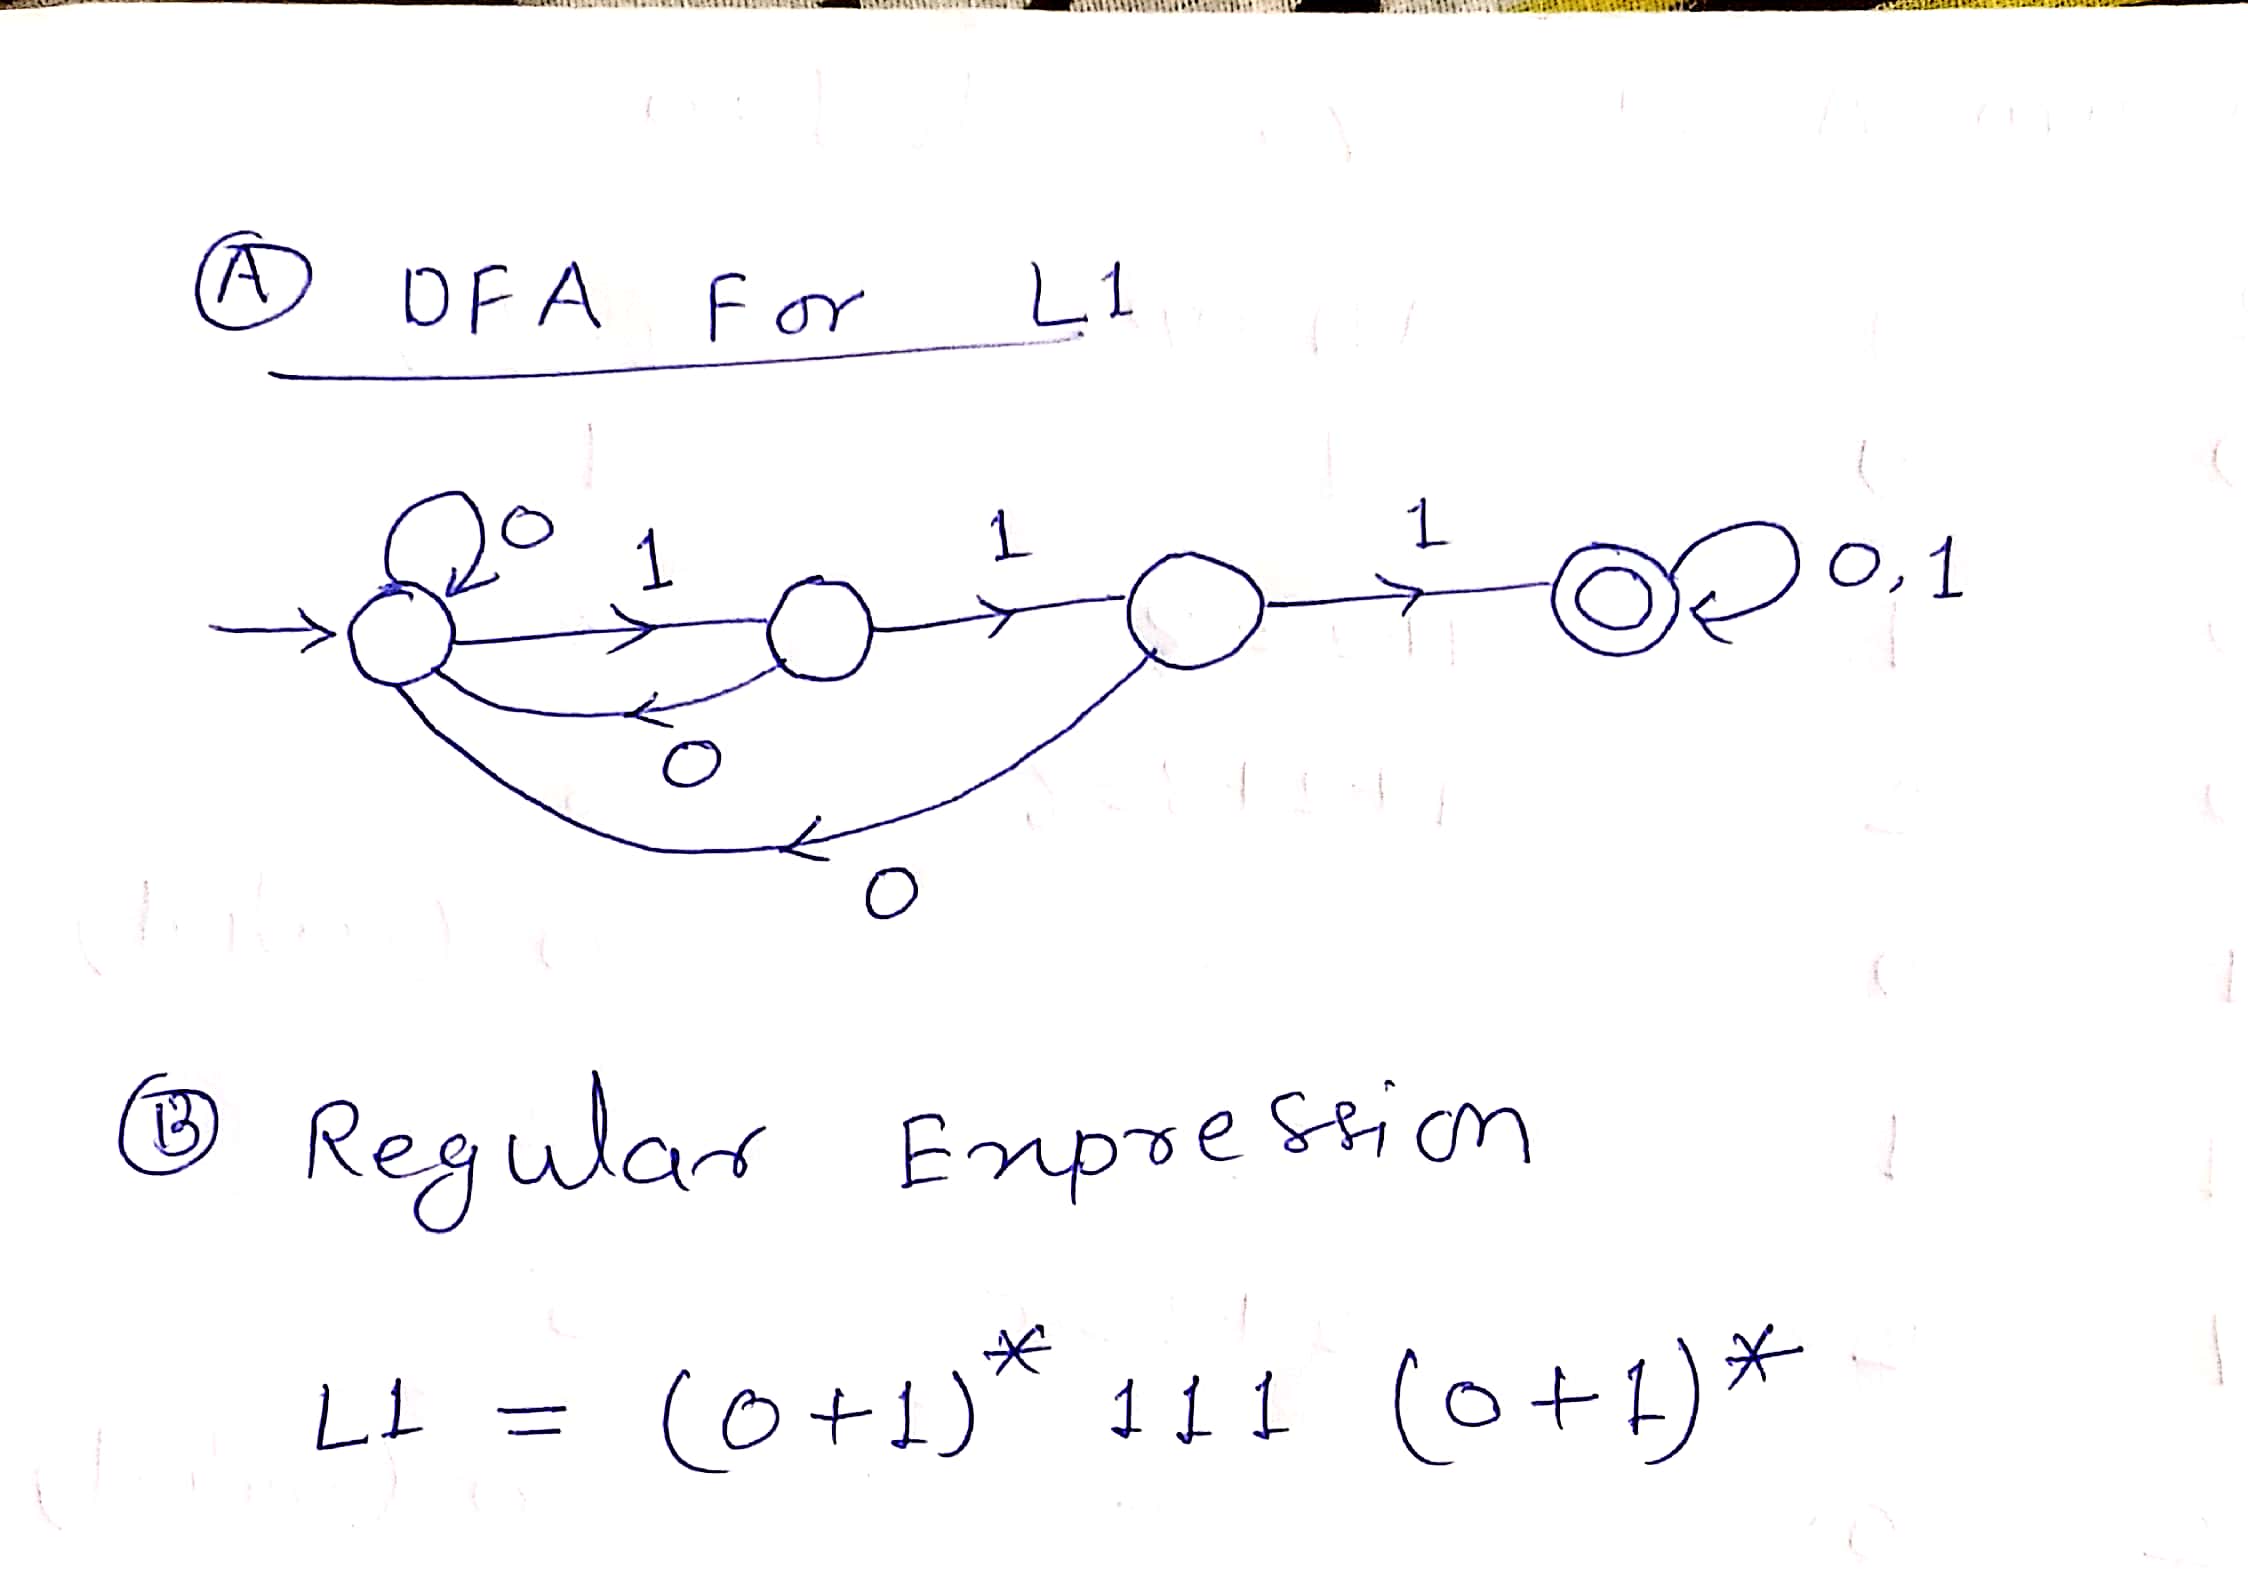 (A) DFA For L1
0 1 1 1 0,1
0
0
(B) Regular Expression
L1 = (0+1)* 111 (0+1)*